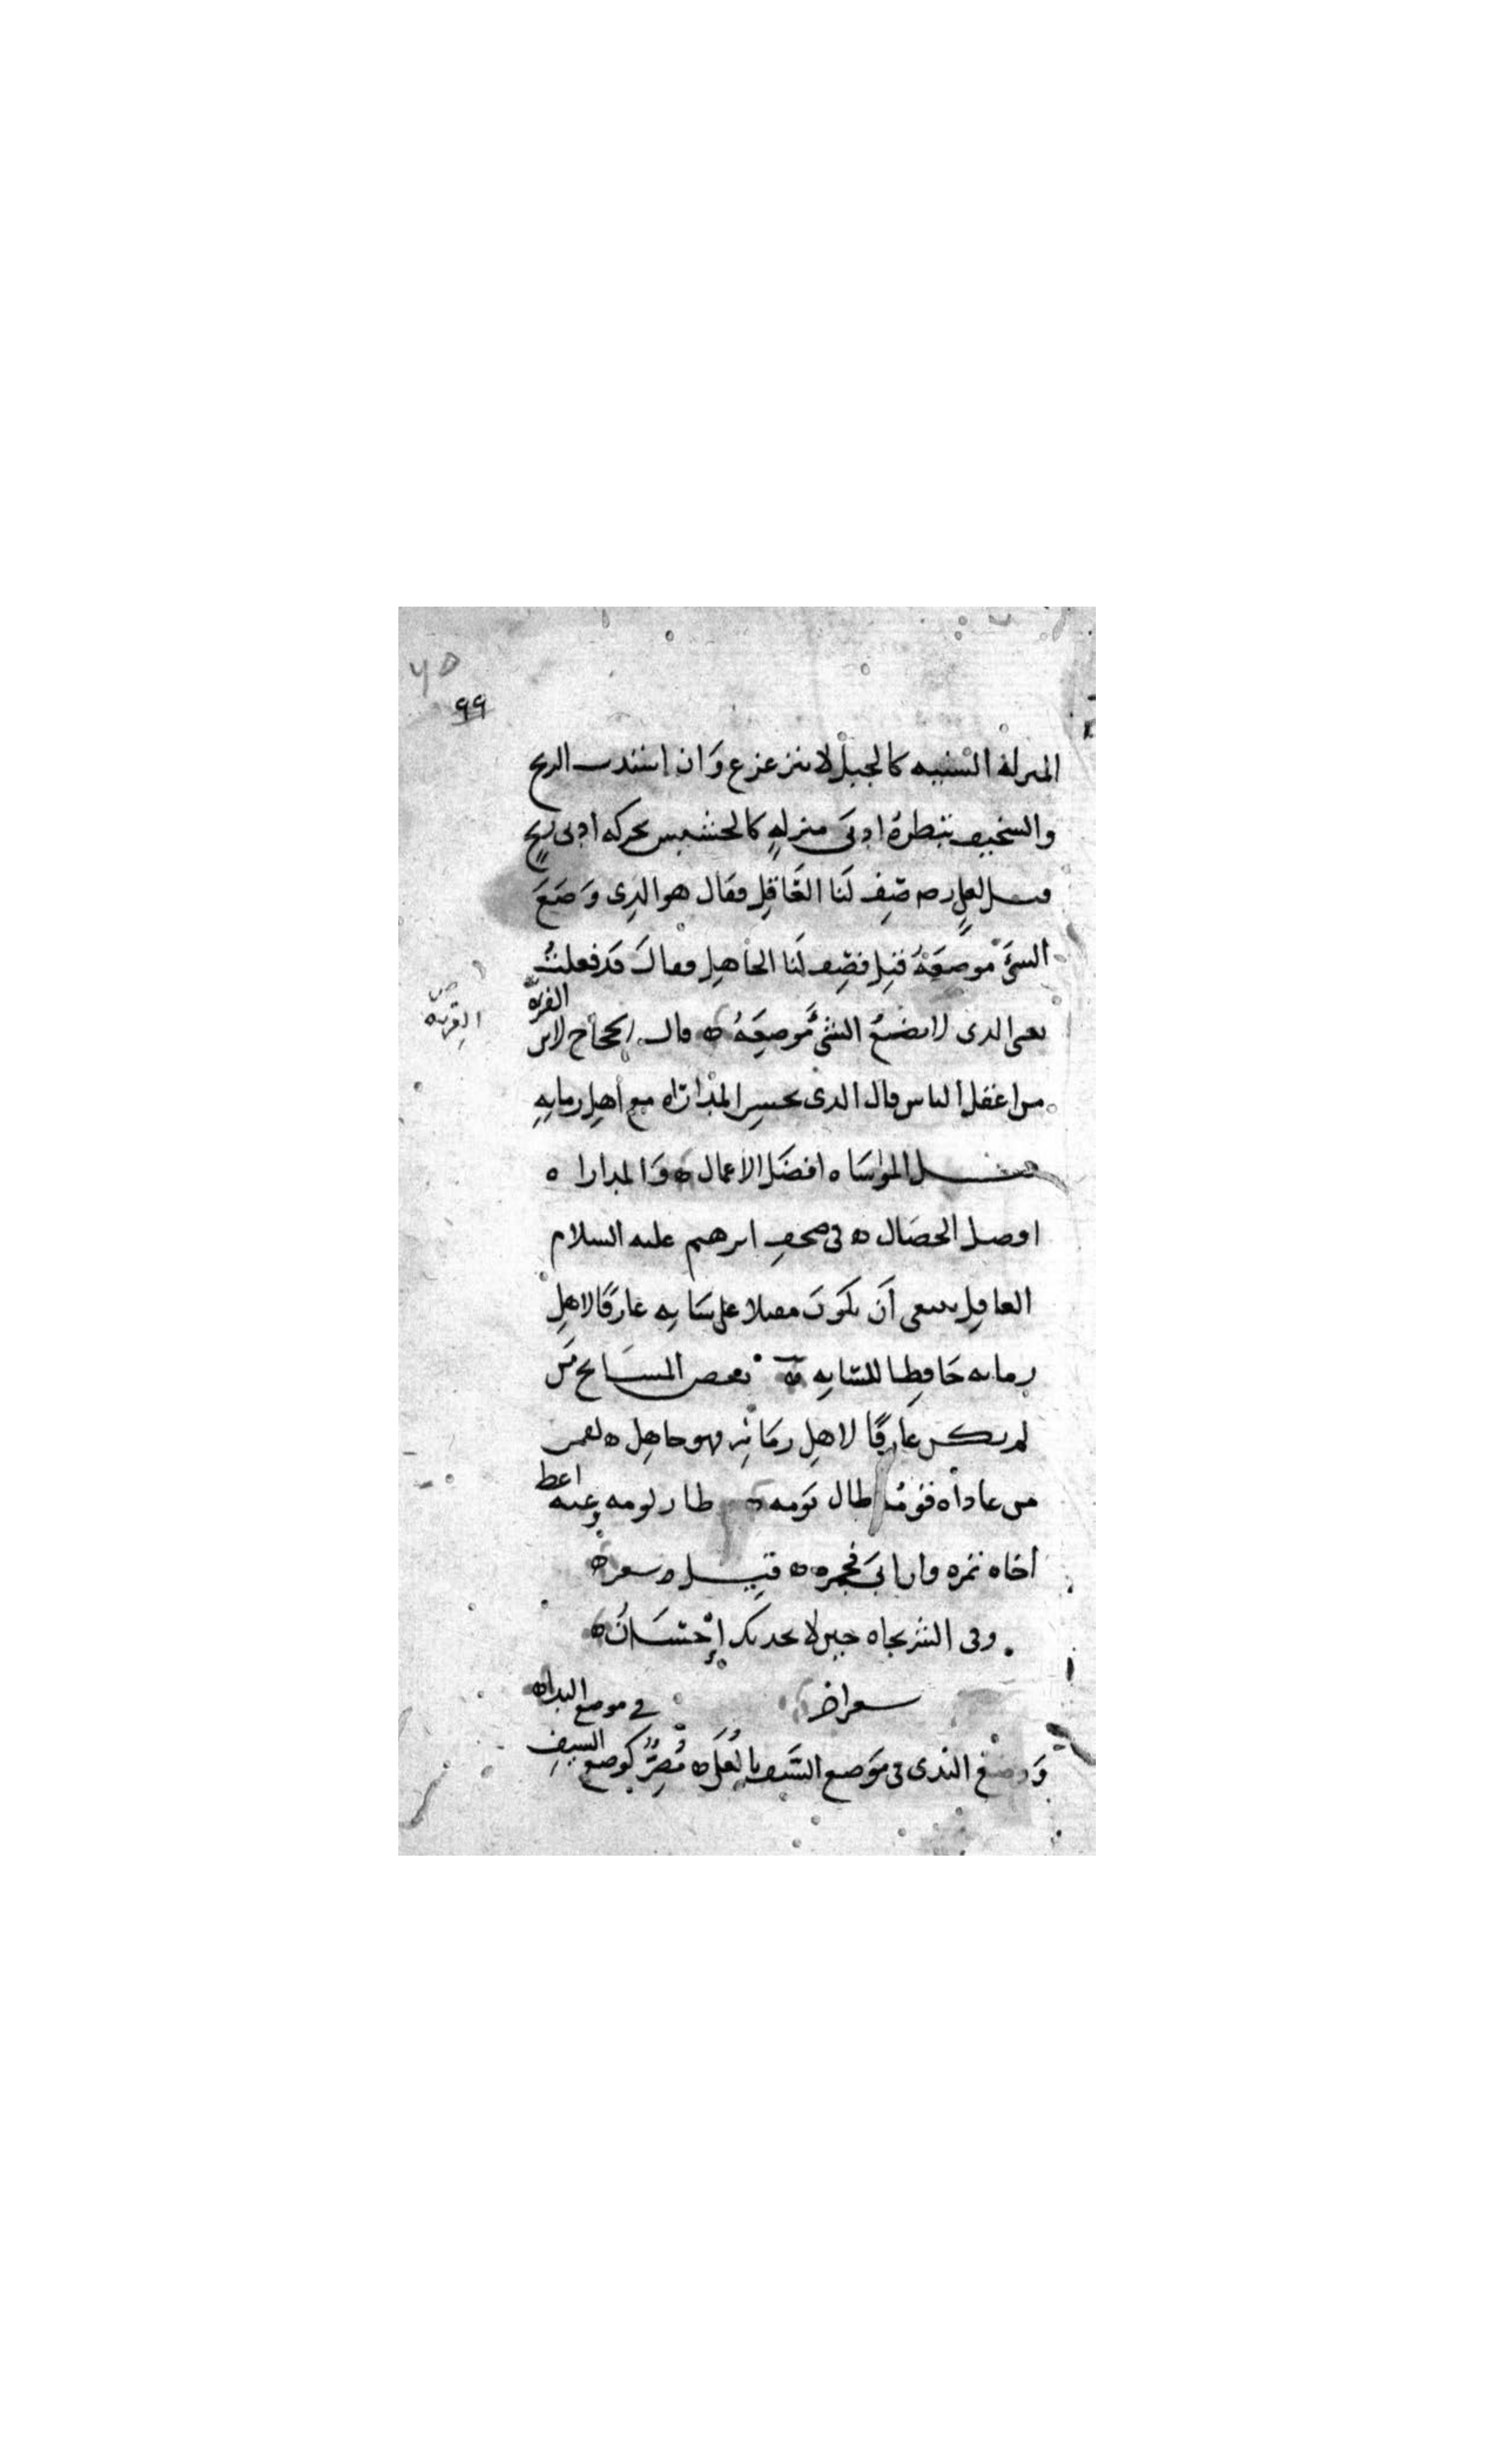 ٩٩
المنزلة السنيه كالجبل لا يتزعزع وَان اشتدت الريح
والسخيف تبطرهُ ادنَى منزلهٍ كالحشيش يحركه ادنى ريحٍ
قيل لعلي رضه صِف لَنا العَاقِل فقال هو الذِى وَضَعَ
الشئَ موضِعَهُ قيل فصِف لَنا الجاهل فقالَ قَد فعلتُ
يعنى الذى لا يضعُ الشئَ مَوضِعَهُ ه قال الحجاج لابن القرّيّه
القِرّيه
من اعقل الناس قال الذى يحسن المداراه مع اهل زمانِهِ
قيل المواسَاه افضَل الاعمال ه وَالمداراه
افضل الخصَال ه فى صحفِ ابرهيم عليه السلام
العاقل ينبغى اَن يكوَن مقبلا على شَانِه عَارفًا لاهلِ
زمانه حَافِظا للسَانِه بعض المشَايخ مَن
لم يكن عارفًا لاهل زمَانِه فهو جاهل ه لقمن
من عاداه قومُه طال نومه ه طار لومه
اعط
اخاه تمره وان ابَى فجمره ه قيل شعر ه
وفى الشر نجاه حين لا ينجيك إِحْسَانُ ه
شعر اخر
وَوضع الندى فى مَوضع السَيف بالعُلَى ه مُضِرٌّ كوضع السيفِ فى موضع الندا ه